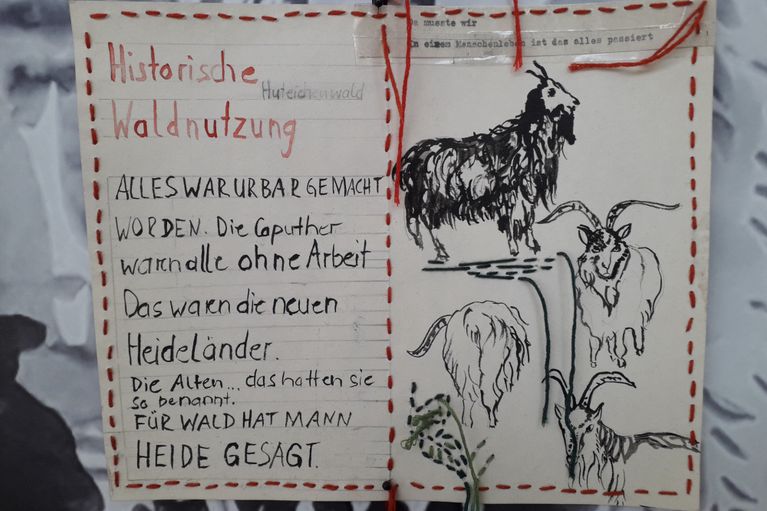 Historische
Huteichenwald
Waldnutzung
ALLES WAR URBAR GEMACHT
WORDEN. Die Caputher
waren alle ohne Arbeit
Das waren die neuen
Heideländer.
Die Alten... das hatten sie
so benannt.
FÜR WALD HAT MANN
HEIDE GESAGT.
Da musste wir
In einem Menschenleben ist das alles passiert